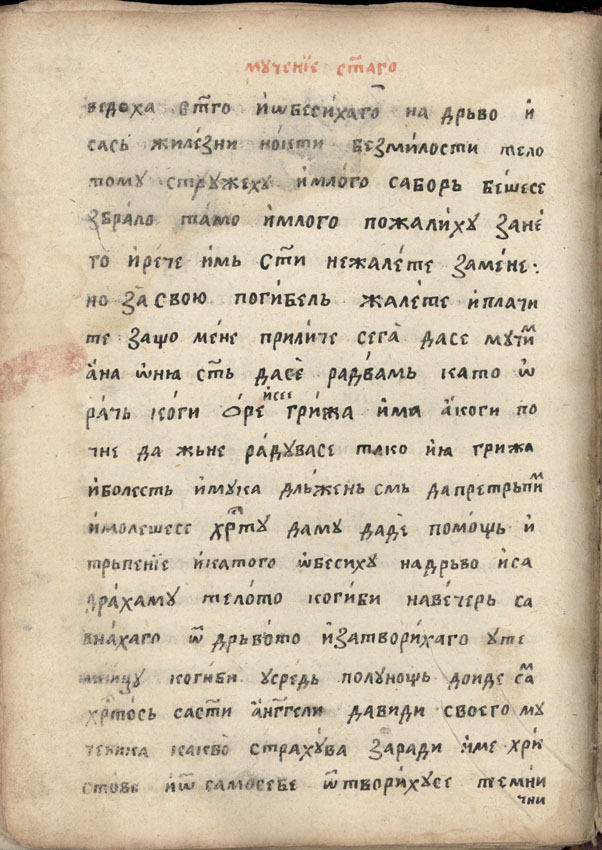 мꙋченїе ст҃аго
ведоха ст҃го и҆ѡбесиха̀го на дрьво и҆
сась жиле́зни но́кти безми́лости тело
томꙋ стрꙋжехꙋ и҆мло́го саборь бе́шесе
ꙁбра́ло та́мо и҆млого пожали́хꙋ ꙁане́
го и҆ре́че и҆мь ст҃и нежале́те ꙁамене:
но ꙁасвою поги́бель жале́те и҆плачи
те ꙁащо мене прили́че сега̀ дасе мꙋчим
а҆на ѡ҆ню ст҃ь дасѐ ра́двамь като ѡ҆
ра́чь ко́ги ѻ҆ре́ исее гри́жа и҆ма а҆коги по
чне да жьне ра́дꙋвасе тако и҆ꙗ грижа
и҆болесть и҆мꙋка дль́жень смь дапретрьпим
и҆моле́шесе хр҃тꙋ дамꙋ дадѐ по́мощь и҆
трьпенїе и҆като́го ѡ҆бесихꙋ надрьво и҆са
дра́хамꙋ тело́то коги́би наве́черь са
вна́хаго ѿ дрьво́то и҆ꙁатвори́хаго ꙋте
мницꙋ коги́би ꙋсредь полꙋнощь доиде сам
хр҃то́сь састи́ а҆нг҃гели давиди своего мꙋ
ченика какво̀ страхꙋ́ва ꙁаради и҆ме хри
стове и҆ѿ самосебе ѿтвори́хꙋсе темни
чни